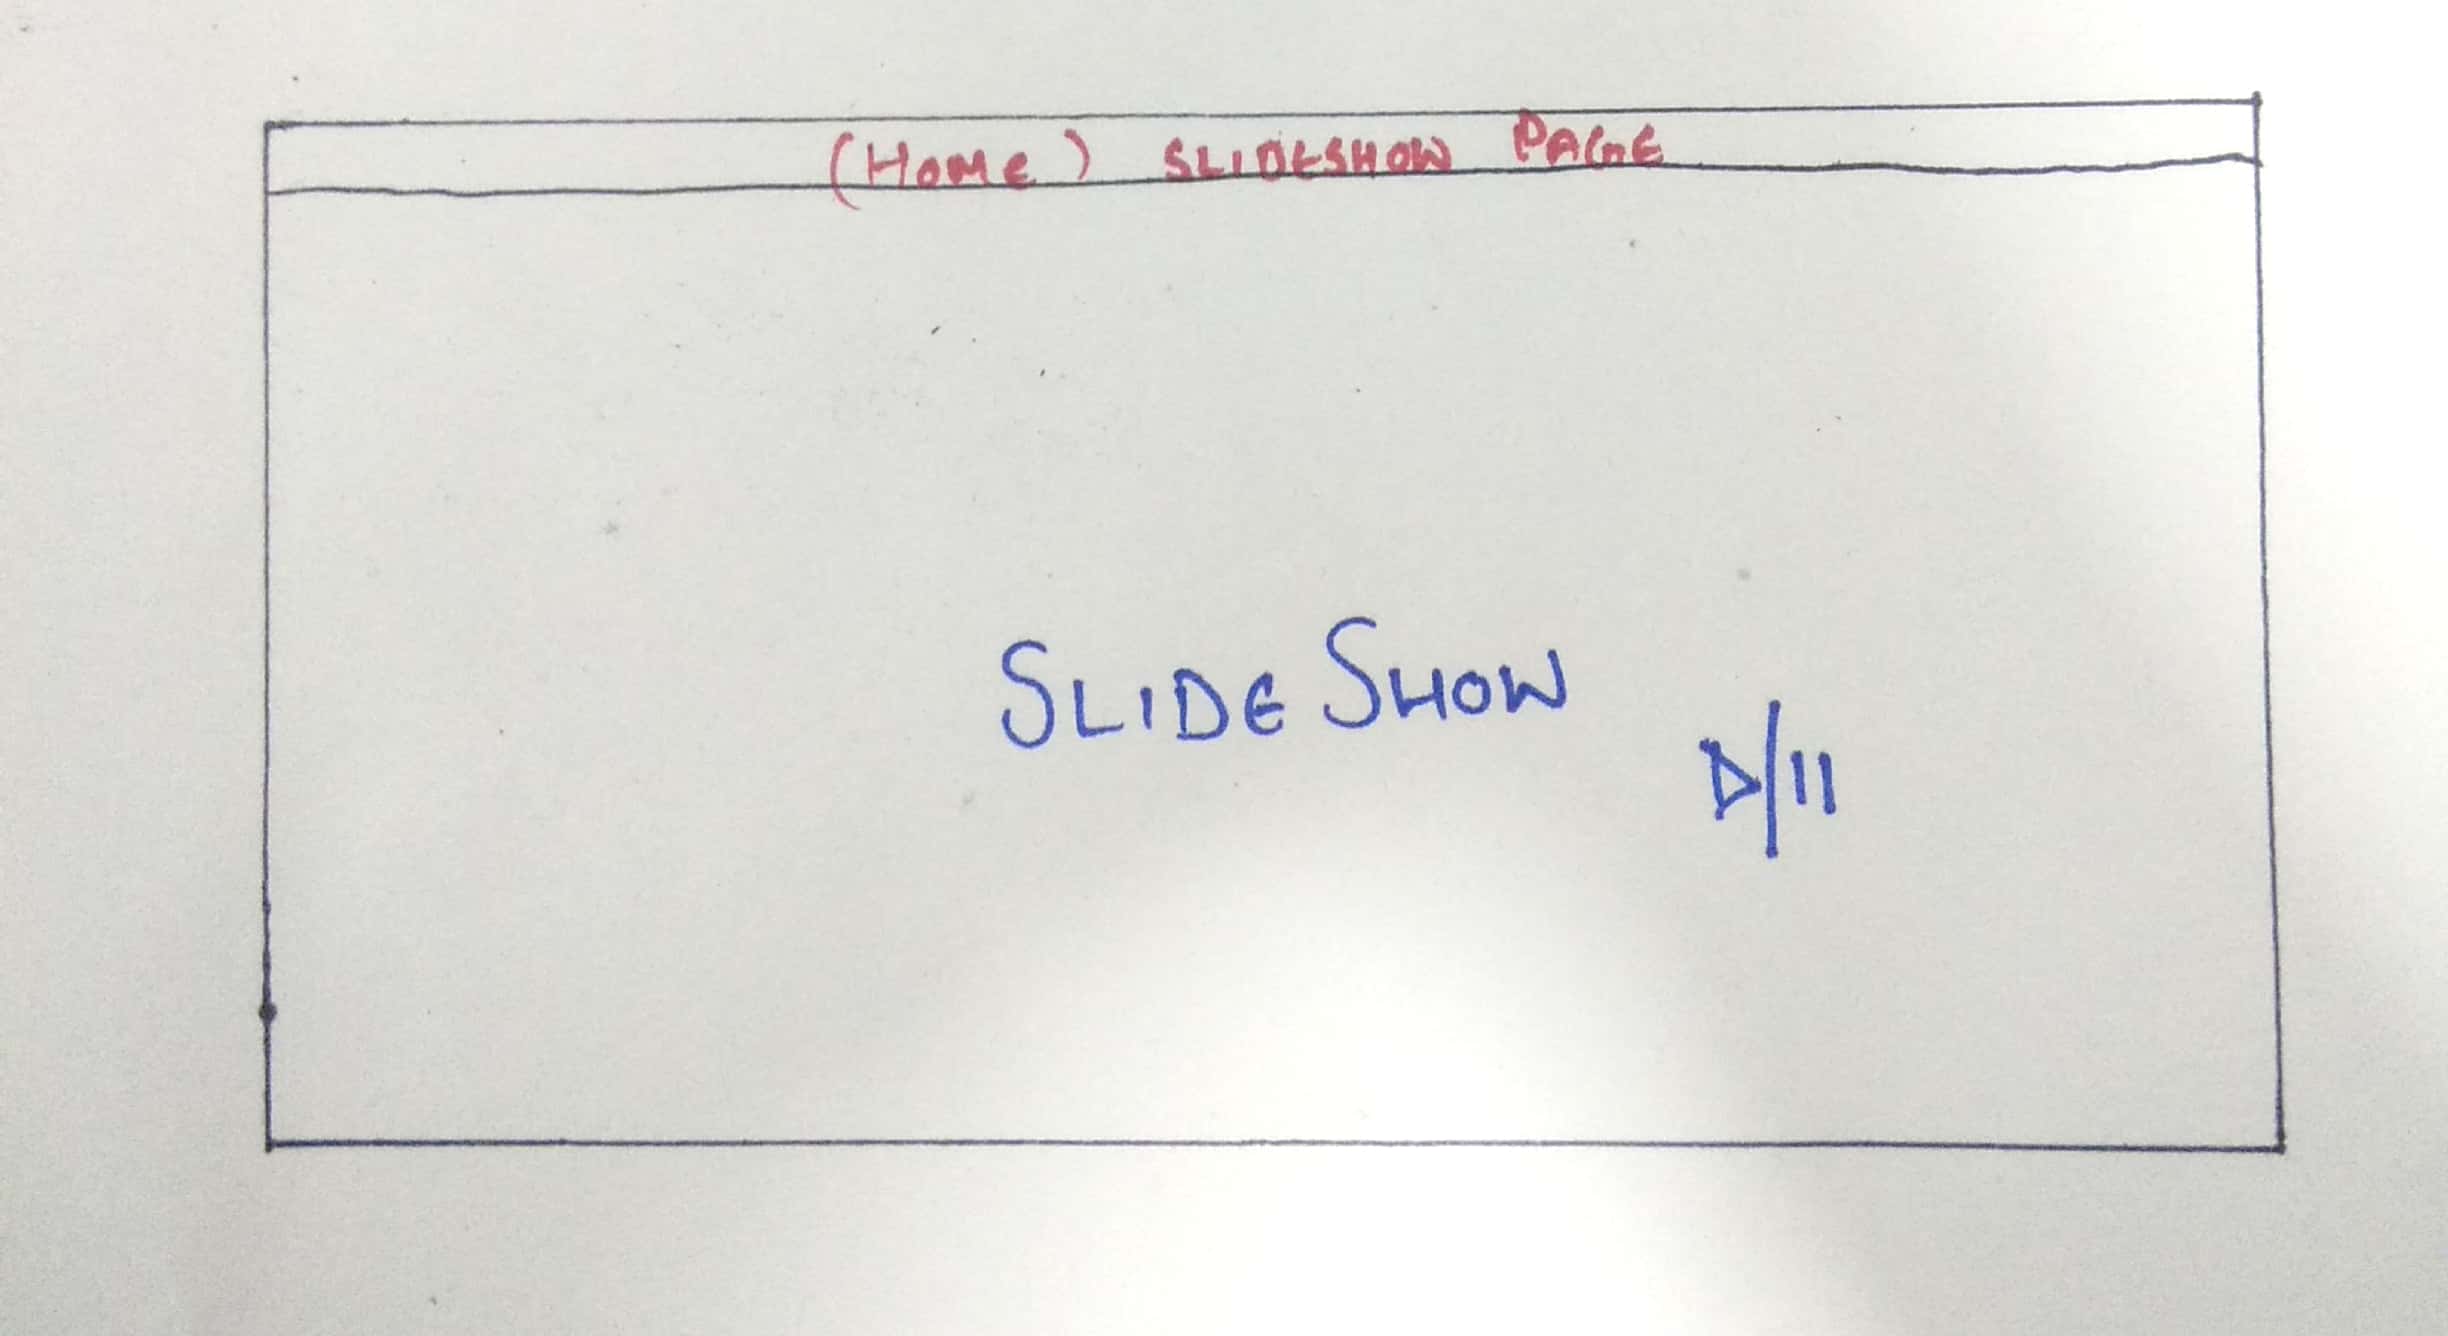 (HOME) SLIDESHOW PAGE
SLIDE SHOW
▷/||